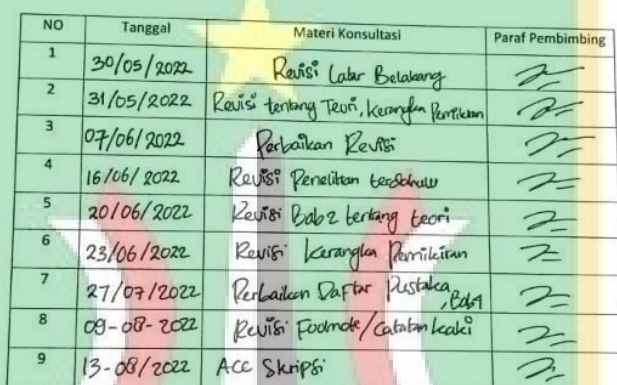 NO Tanggal Materi Konsultasi Paraf Pembimbing
1 30/05/2022 Revisi Latar Belakang
2 31/05/2022 Revisi tentang Teori, Kerangka Pemikiran
3 07/06/2022 Perbaikan Revisi
4 16/06/2022 Revisi Penelitian terdahulu
5 20/06/2022 Revisi Bab 2 tentang teori
6 23/06/2022 Revisi Kerangka Pemikiran
7 27/07/2022 Perbaikan Daftar Pustaka, Bab 1
8 09-08-2022 Revisi Footnote/Catatan kaki
9 13-08/2022 Acc Skripsi